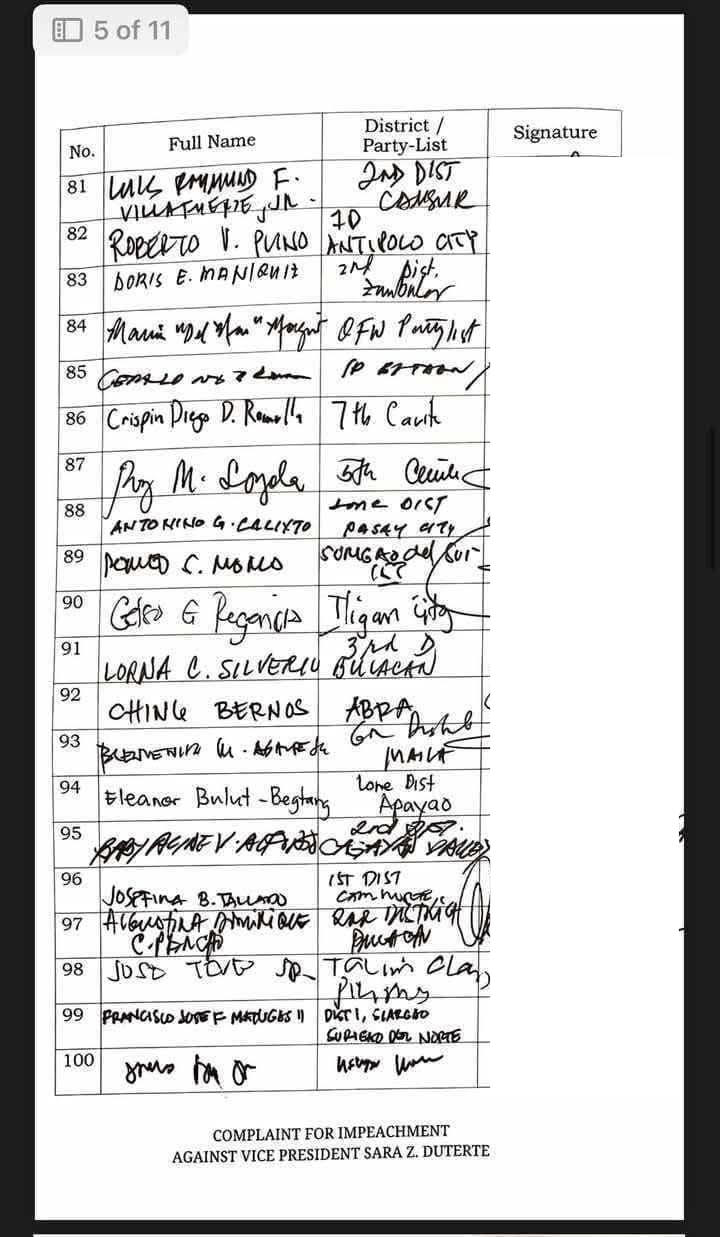 5 of 11
No.
Full Name
District /
Party-List
Signature
81
LUIS RAYMUND F.
VILLAFUERTE, JR.
2ND DIST
CAMSUR
82
ROBERTO V. PUNO
1D
ANTIPOLO CITY
83
DORIS E. MANIQUIZ
2nd Dist.
Zambales
84
Maria "Del Mar"
OFW Partylist
85
1D BATAAN
86
Crispin Diego D. Remulla
7th Cavite
87
Roy M. Loyola
5th Cavite
88
ANTONINO G. CALIXTO
Lone DIST
PASAY CITY
89
ROMEO S. MOMO
SURIGAO del Sur
1ST
90
Celso G Regencia
Iligan City
91
LORNA C. SILVERIO
3rd D
BULACAN
92
CHING BERNOS
ABRA
93
BIENVENIDO M. ABANTE Jr
6th District
MANILA
94
Eleanor Bulut-Begtang
Lone Dist
Apayao
95
BABY ALINE V. ALFONSO
2nd DIST.
CAGAYAN VALLEY
96
JOSEFINA B. TALLADO
1ST DIST
CAM NORTE
97
AUGUSTINA DOMINIQUE
C. PANCHO
2ND DISTRICT
BULACAN
98
JOSE TEVES JR.
99
FRANCISCO JOSE F MATUGAS II
DIST 1, SIARGAO
SURIGAO DEL NORTE
100
COMPLAINT FOR IMPEACHMENT
AGAINST VICE PRESIDENT SARA Z. DUTERTE